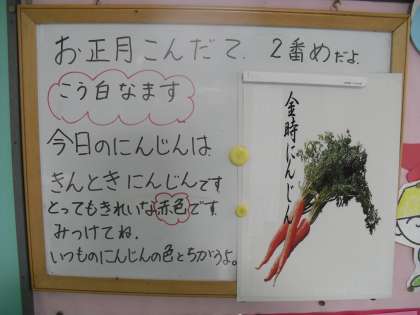 お正月こんだて、2番めだよ
こう白なます
今日のにんじんは
きんときにんじんです
とってもきれいな赤色です
みつけてね。
いつものにんじんの色とちがうよ。
金時にんじん